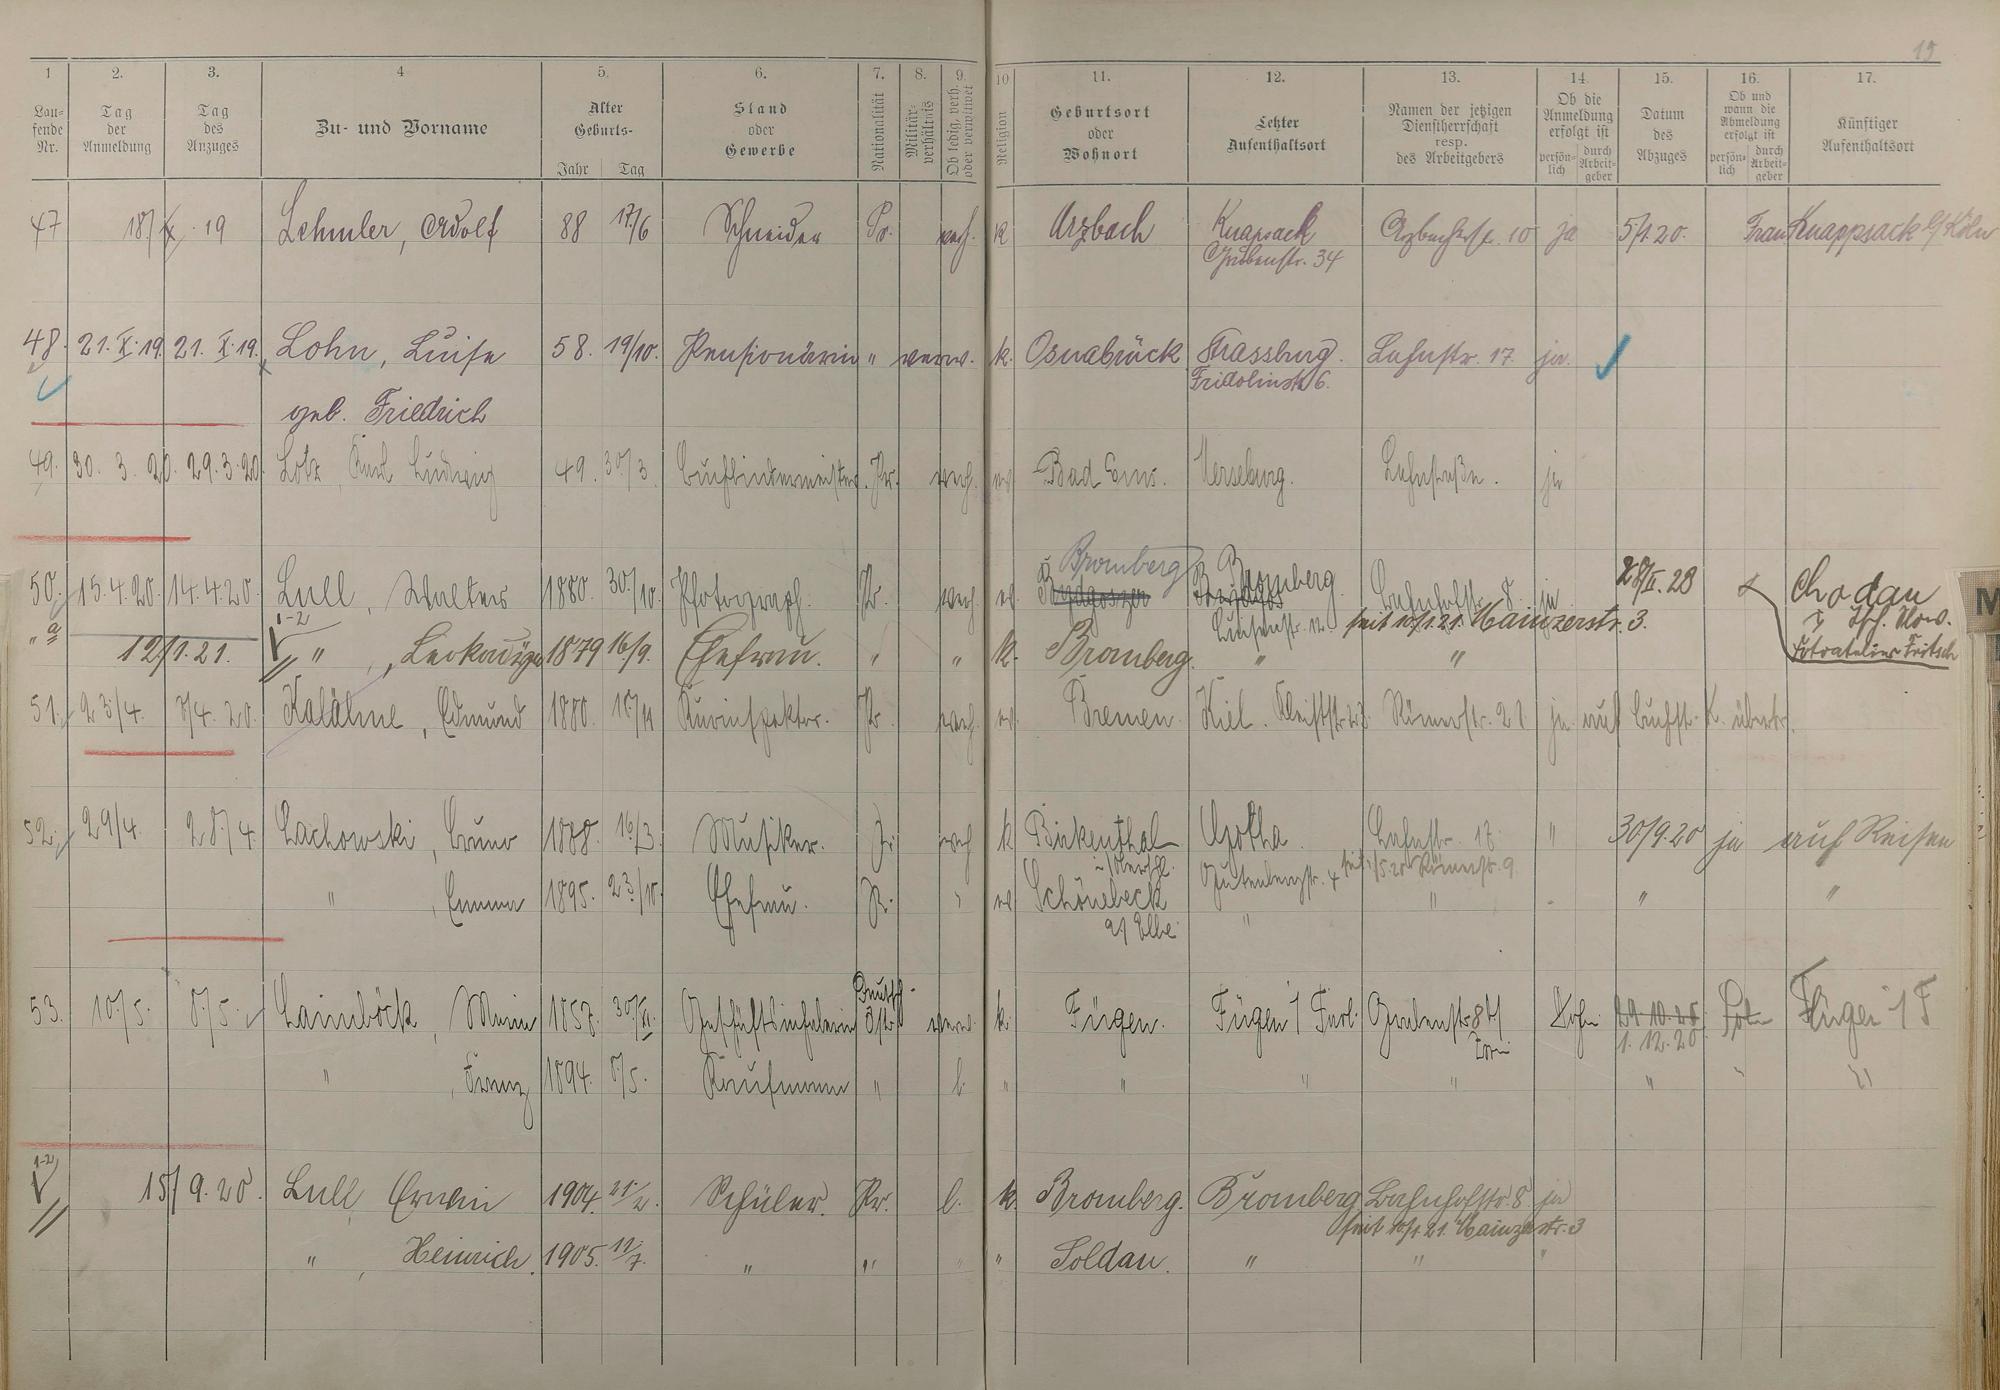 19
1 2. 3. 4 5. 6. 7. 8. 9. 10 11. 12. 13. 14. 15. 16. 17.
Lau-
fende
Nr.
Tag
der
Anmeldung
Tag
des
Anzuges
Zu- und Vorname
Alter
Geburts-
Jahr Tag
Stand
oder
Gewerbe
Nationalität
Militär-
verhältnis
Ob ledig, verh.
oder verwitwet
Religion
Geburtsort
oder
Wohnort
Letzter
Aufenthaltsort
Namen der jetzigen
Dienstherrschaft
resp.
des Arbeitgebers
Ob die
Anmeldung
erfolgt ist
persön-
lich
durch
Arbeit-
geber
Datum
des
Abzuges
Ob und
wann die
Abmeldung
erfolgt ist
persön-
lich
durch
Arbeit-
geber
Künftiger
Aufenthaltsort
47 18/X. 19 Lehmler, Adolf 88 17/6 Schneider Pr. verh. k Arzbach Knapsack Arzbacherstr. 10 ja 5/1.20. Frau Knappsack b/Köln
Grubenstr. 34
48. 21. X. 19. 21. X. 19. Lohn, Luise 58. 19/10. Pensionärin " verw. k. Osnabrück Strassburg. Lahnstr. 17 ja.
Fridolinstr. 6.
geb. Friedrich
49. 30. 3. 20. 29. 3. 20. Lotz, Karl Ludwig 49. 30/3. Buchbindermeister. Pr. verh. ev Bad Ems. Merseburg. Lahnstraße. ja
Bromberg
50. 15.4.20. 14.4.20. Lull, Walter 1880. 30/10. Photograph. Pr. verh. ev. Bydgoszcz Bromberg Bahnhofstr. 8. ja 28/II. 28 Chodau
Luisenstr. 12. seit 10/1.21. Mainzerstr. 3.
1-2
" a 12/1.21. " , Leokadija 1879 16/9. Ehefrau. " " k. Bromberg. " " Fotoatelier Fritsch
51. 23/4. 8/4. 20. Kalähne, Edmund 1880. Kurinspektor. Pr. verh. ev. Bremen. Kiel. Kleiststr. 23 Römerstr. 21 ja auf Buchst. K. übertr.
52. 29/4. 28/4. Lachowski, Bruno 1888. 16/3 Musiker. Pr. verh k Birkenthal Gotha. Lahnstr. 17. " 30/9.20 ja auf Reisen
Gutenbergstr. 4 seit 1/5.20 Römerstr. 9
" , Emma 1895. 23/10. Ehefrau. Pr. " ev. Schönebeck " " " "
a/ Elbe.
53. 10/5. 8/5. Laimböck, Maria 1857. 30/XI. Geschäftsinhaberin Deutsch- Östr. verw. k. Fügen. Fügen Grabenstr. 29.10.20
1. 12. 20
" , Franz 1894. 8/5. Kaufmann " l. " " " " " " "
1-2
15/9.20. Lull, Erwin 1904. 21/2. Schüler. Pr. l. k. Bromberg. Bromberg Bahnhofstr. 8. ja
seit 10/1.21. Mainzerstr. 3
" , Heinrich. 1905. 11/7. " " " " Soldau. " " "